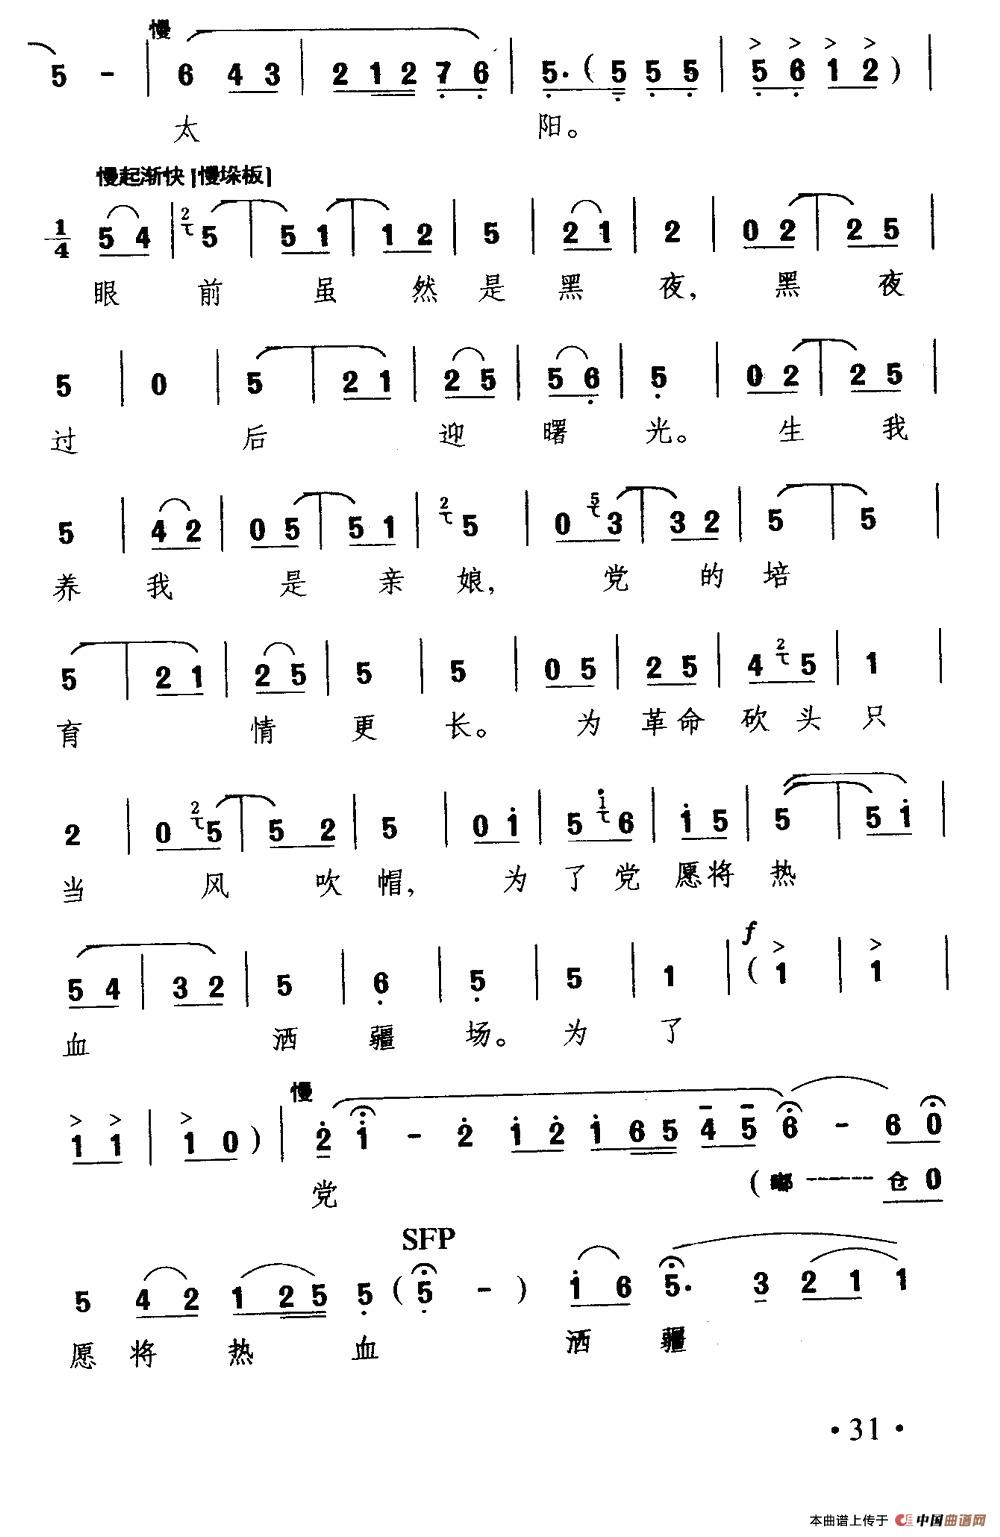 慢
5 - | 6 4 3 | 2 1 2 7 6 | 5. ( 5 5 5 | 5 6 1 2 ) |
太 阳。
慢起渐快 [慢垛板]
1/4 5 4 | 2 5 | 5 1 | 1 2 | 5 | 2 1 | 2 | 0 2 | 2 5 |
眼 前 虽 然 是 黑 夜, 黑 夜
5 | 0 | 5 | 2 1 | 2 5 | 5 6 | 5 | 0 2 | 2 5 |
过 后 迎 曙 光。 生 我
5 | 4 2 | 0 5 | 5 1 | 2 5 | 0 5 3 | 3 2 | 5 | 5 |
养 我 是 亲 娘, 党 的 培
5 | 2 1 | 2 5 | 5 | 5 | 0 5 | 2 5 | 4 2 5 | 1 |
育 情 更 长。 为 革 命 砍 头 只
2 | 0 2 5 | 5 2 | 5 | 0 1 | 5 1 6 | 1 5 | 5 | 5 1 |
当 风 吹 帽, 为 了 党 愿 将 热
f
5 4 | 3 2 | 5 | 6 | 5 | 5 | 1 | ( 1 | 1 |
血 洒 疆 场。 为 了
慢
1 1 | 1 0 ) | 2 1 - 2 1 2 1 6 5 4 5 6 - 6 0
党 ( 嘟 ------ 仓 0
SFP
5 4 2 1 2 5 5 ( 5 - ) 1 6 5. 3 2 1 1
愿 将 热 血 洒 疆
· 31 ·
本曲谱上传于 中国曲谱网